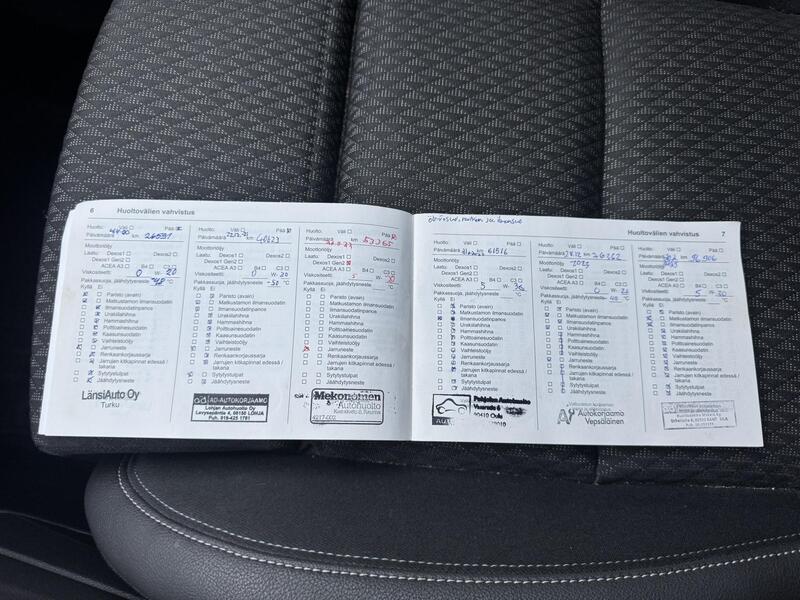 6 Huoltovälien vahvistus
Huolto: Väli Pää
Päivämäärä km
Moottoriöljy
Laatu: Dexos1
Dexos1 Gen2
ACEA A3 B4 C3
Viskositeetti 0 W- 20
Pakkassuoja, jäähdytysneste °C
Kyllä Ei
Paristo (avain)
Matkustamon ilmansuodatin
Ilmansuodatinpanos
Urakiilahihna
Hammashihna
Polttoainesuodatin
Kaasunsuodatin
Vaihteistoöljy
Jarruneste
Renkaankorjaussarja
Jarrujen kitkapinnat edessä /
takana
Sytytystulpat
Jäähdytysneste
LänsiAuto Oy
Turku
Huolto: Väli Pää
Päivämäärä km 40623
Moottoriöljy
Laatu: Dexos1
Dexos1 Gen2
ACEA A3 B4 C3
Viskositeetti 0 W- 20
Pakkassuoja, jäähdytysneste °C
Kyllä Ei
Paristo (avain)
Matkustamon ilmansuodatin
Ilmansuodatinpanos
Urakiilahihna
Hammashihna
Polttoainesuodatin
Kaasunsuodatin
Vaihteistoöljy
Jarruneste
Renkaankorjaussarja
Jarrujen kitkapinnat edessä /
takana
Sytytystulpat
Jäähdytysneste
AD-AUTOKORJAAMO
Lohjan Autohuolto Oy
Huolto: Väli Pää
Päivämäärä km 53365
Moottoriöljy
Laatu: Dexos1
Dexos1 Gen2
ACEA A3 B4 C3
Viskositeetti 5 W-
Pakkassuoja, jäähdytysneste °C
Kyllä Ei
Paristo (avain)
Matkustamon ilmansuodatin
Ilmansuodatinpanos
Urakiilahihna
Hammashihna
Polttoainesuodatin
Kaasunsuodatin
Vaihteistoöljy
Jarruneste
Renkaankorjaussarja
Jarrujen kitkapinnat edessä /
takana
Sytytystulpat
Jäähdytysneste
Mekonomen
Autohuolto
Huoltovälien vahvistus 7
Huolto: Väli Pää
Päivämäärä km 61516
Moottoriöljy
Laatu: Dexos1
Dexos1 Gen2
ACEA A3 B4 C3
Viskositeetti 5 W-
Pakkassuoja, jäähdytysneste °C
Kyllä Ei
Paristo (avain)
Matkustamon ilmansuodatin
Ilmansuodatinpanos
Urakiilahihna
Hammashihna
Polttoainesuodatin
Kaasunsuodatin
Vaihteistoöljy
Jarruneste
Renkaankorjaussarja
Jarrujen kitkapinnat edessä /
takana
Sytytystulpat
Jäähdytysneste
Pohjolan Autohuolto
Vasaratie 6
90410 Oulu
Huolto: Väli Pää
Päivämäärä km 76362
Moottoriöljy 2023
Laatu: Dexos1
Dexos1 Gen2
ACEA A3 B4 C3
Viskositeetti 0 W- 20
Pakkassuoja, jäähdytysneste °C
Kyllä Ei
Paristo (avain)
Matkustamon ilmansuodatin
Ilmansuodatinpanos
Urakiilahihna
Hammashihna
Polttoainesuodatin
Kaasunsuodatin
Vaihteistoöljy
Jarruneste
Renkaankorjaussarja
Jarrujen kitkapinnat edessä /
takana
Sytytystulpat
Jäähdytysneste
Autokorjaamo
Vepsäläinen
Huolto: Väli Pää
Päivämäärä km
Moottoriöljy
Laatu: Dexos1
Dexos1 Gen2
ACEA A3 B4 C3
Viskositeetti 5 W- 30
Pakkassuoja, jäähdytysneste °C
Kyllä Ei
Paristo (avain)
Matkustamon ilmansuodatin
Ilmansuodatinpanos
Urakiilahihna
Hammashihna
Polttoainesuodatin
Kaasunsuodatin
Vaihteistoöljy
Jarruneste
Renkaankorjaussarja
Jarrujen kitkapinnat edessä /
takana
Sytytystulpat
Jäähdytysneste